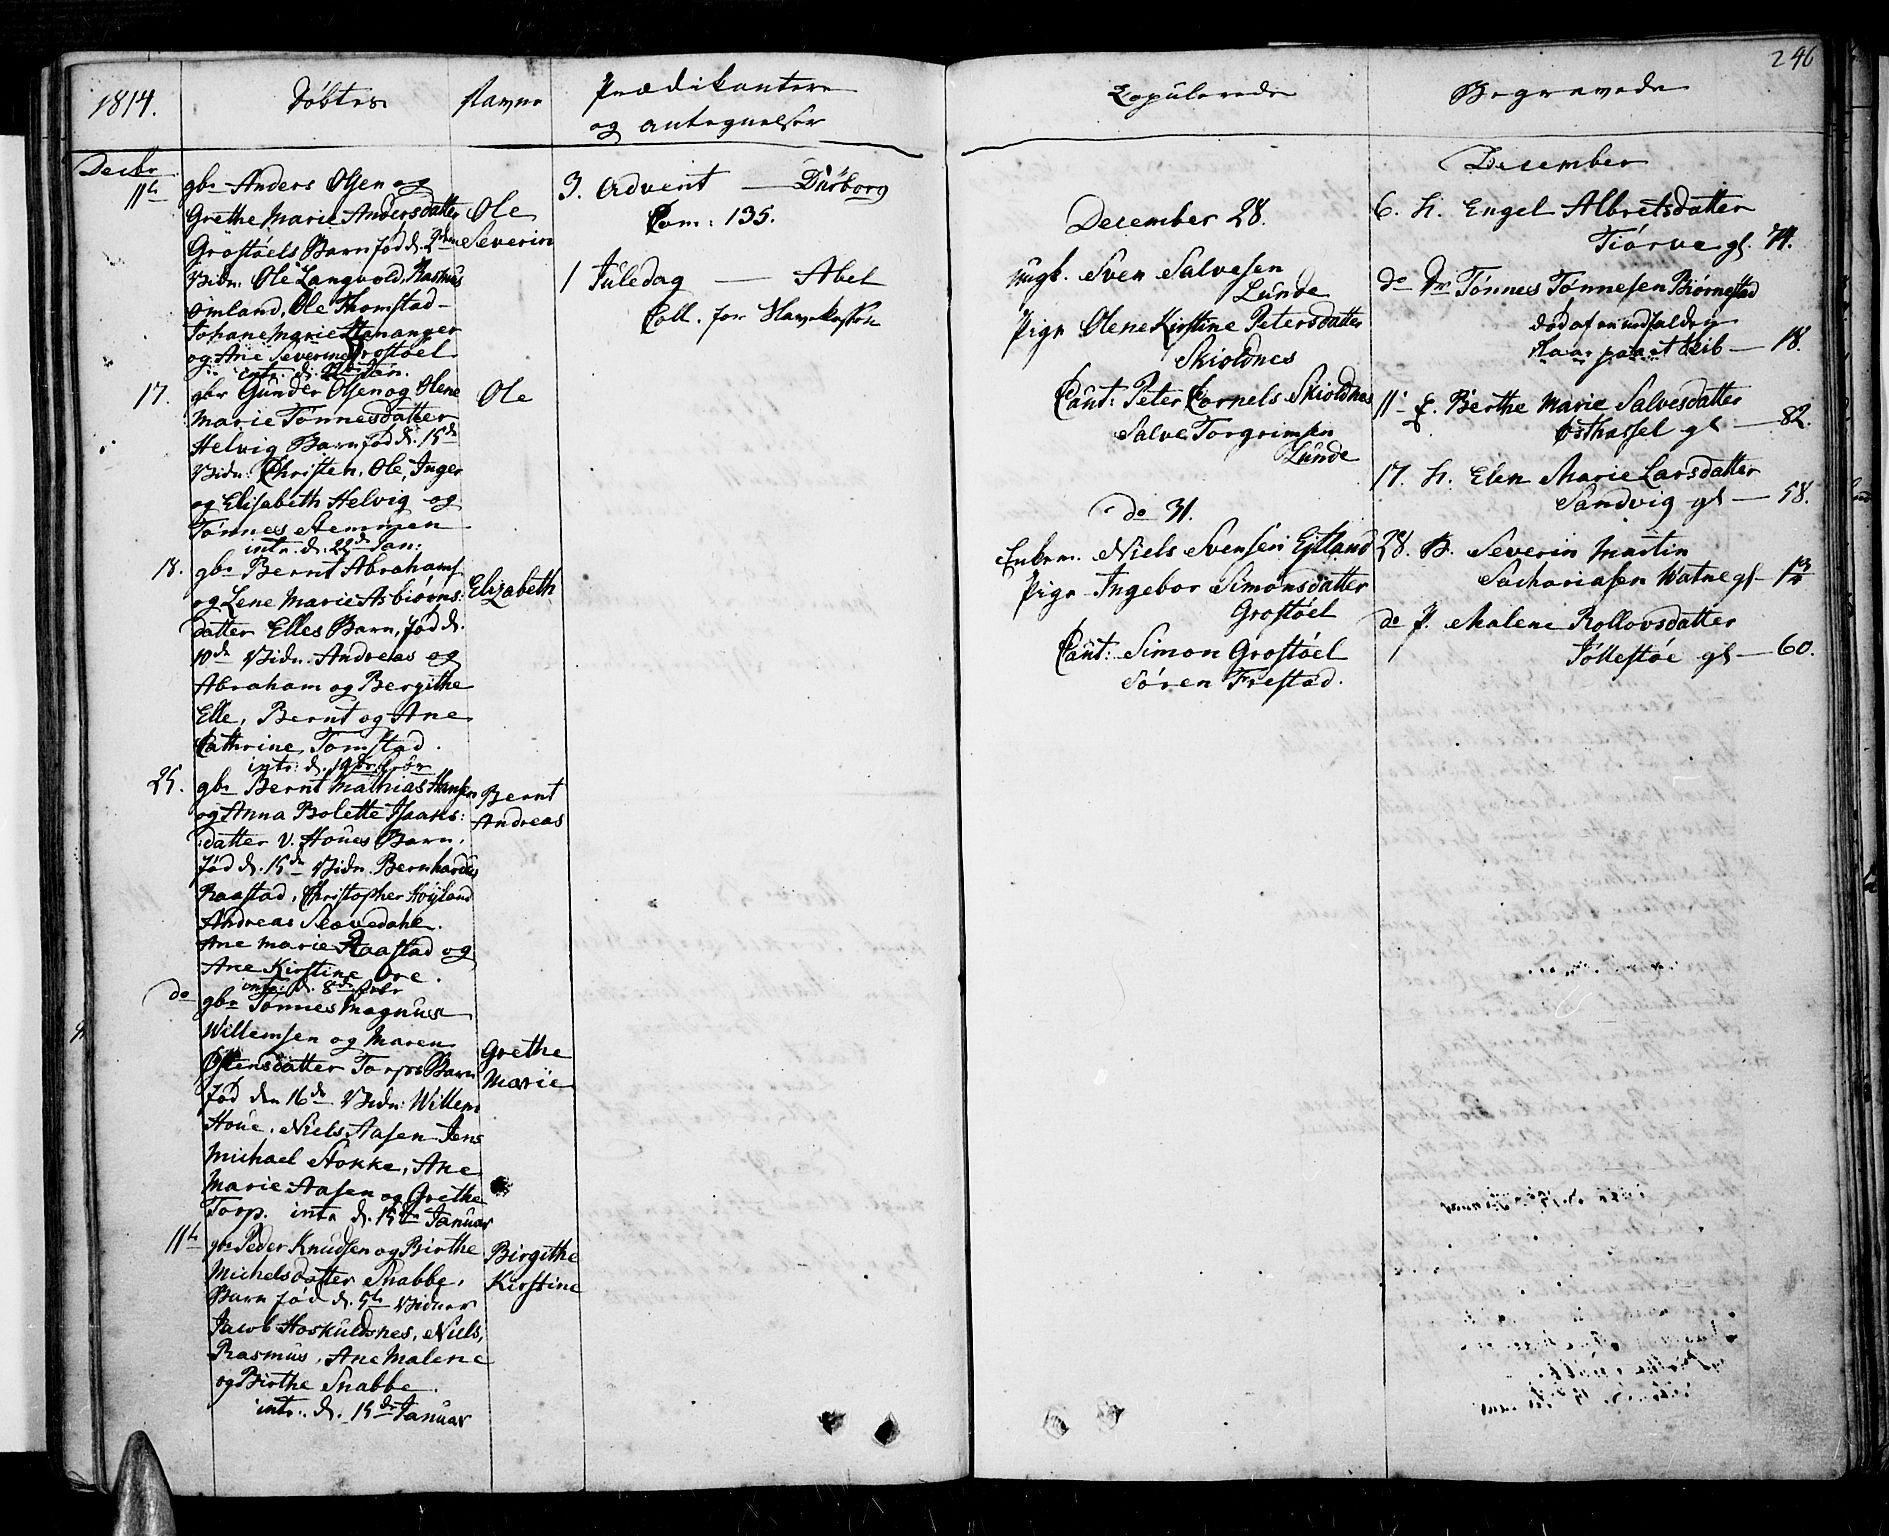 246
1814.
Döbte
Navne
Prædikantere
og antegnelser
Decbr
11te gbr Anders Olsen og
Grethe Marie Andersdatter
Grostøels Barn fød d. 2den
Vidn: Ole Langvold, Rasmus
Omland, Ole Thomstad
Johane Marie Stenanger
og Ane Severine Grostøel
intr. d. Jan.
Ole
Severin
17. gbr Gunder Olsen og Olene
Marie Tønnesdatter
Helvig Barn fød d. 15de
Vidn: Christen, Ole, Inger
og Elisabeth Helvig og
Tønnes Stemmen
intr. d. 22de Jan:
Ole
18. gbr Bernt Abrahams
og Lene Marie Asbiørns:
datter Elles Barn, fød d.
10de Vidn. Andreas og
Abraham og Bergithe
Elle, Bernt og Ane
Cathrine Tomstad.
intr: d. 19de febr
Elizabeth
25. gbr Bernt Mathias Hansen
og Anna Bolette Isaaks:
datter v. Houes Barn,
fød d. 15de Vidn. Bernhardus
Raastad, Christopher Høyland
Andreas Slævedahl.
Ane Marie Raastad og
Ane Kirstine Ore.
intr: d. 8de febr
Bernt
Andreas
do gbr Tønnes Magnus
Willemsen og Maren
Ostensdatter Torps Barn
fød den 16de Vidn: Willem
Houe, Niels Aasen Jens
Michael Stokke, Ane
Marie Aasen og Grethe
Torp. intr d. 15de Januar
Grethe
Marie
11te gbr Peder Knudsen og Birthe
Michelsdatter Snabbe,
Barn fød d. 5te Vidner
Jacob Hoskuldsnes, Niels,
Rasmus, Ane Malene
og Birthe Snabbe.
intr. d. 15de Januar
Birgithe
Kirstine
3. Advent — Dürborg
Com: 135.
1 Juledag — Abel
Coll. for Slavekassen
Copulerede
December 28.
ungk. Sven Salvesen
Lunde
Pige Olene Kirstine Petersdatter
Skioldnes
Caut: Peter Cornels Skioldnes
Salve Torgrimsen
Lunde
do 31.
Enkem. Niels Svensen Eitland
Pige Ingebor Simonsdatter
Grostøel
Caut: Simon Grostøel
Søren Frestad.
Begravede
December
6. H. Engel Albretsdatter
Tiørve gl. 74.
do Tønnes Tønnesen Biørnestad
død af en indfalden
18.
11. Berthe Marie Salvesdatter
Østhassel gl — 82.
17. H. Elen Marie Larsdatter
Sandvig gl — 58.
28. B. Severin Martin
Sachariasen Watne gl
do P. Malene Rollovsdatter
Jøllestøe gl — 60.